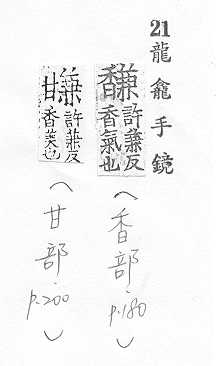 21 龍龕手鏡
馦 許兼反
香氣也
（香部．p.180）
許兼反
香美也
（甘部．p.200）